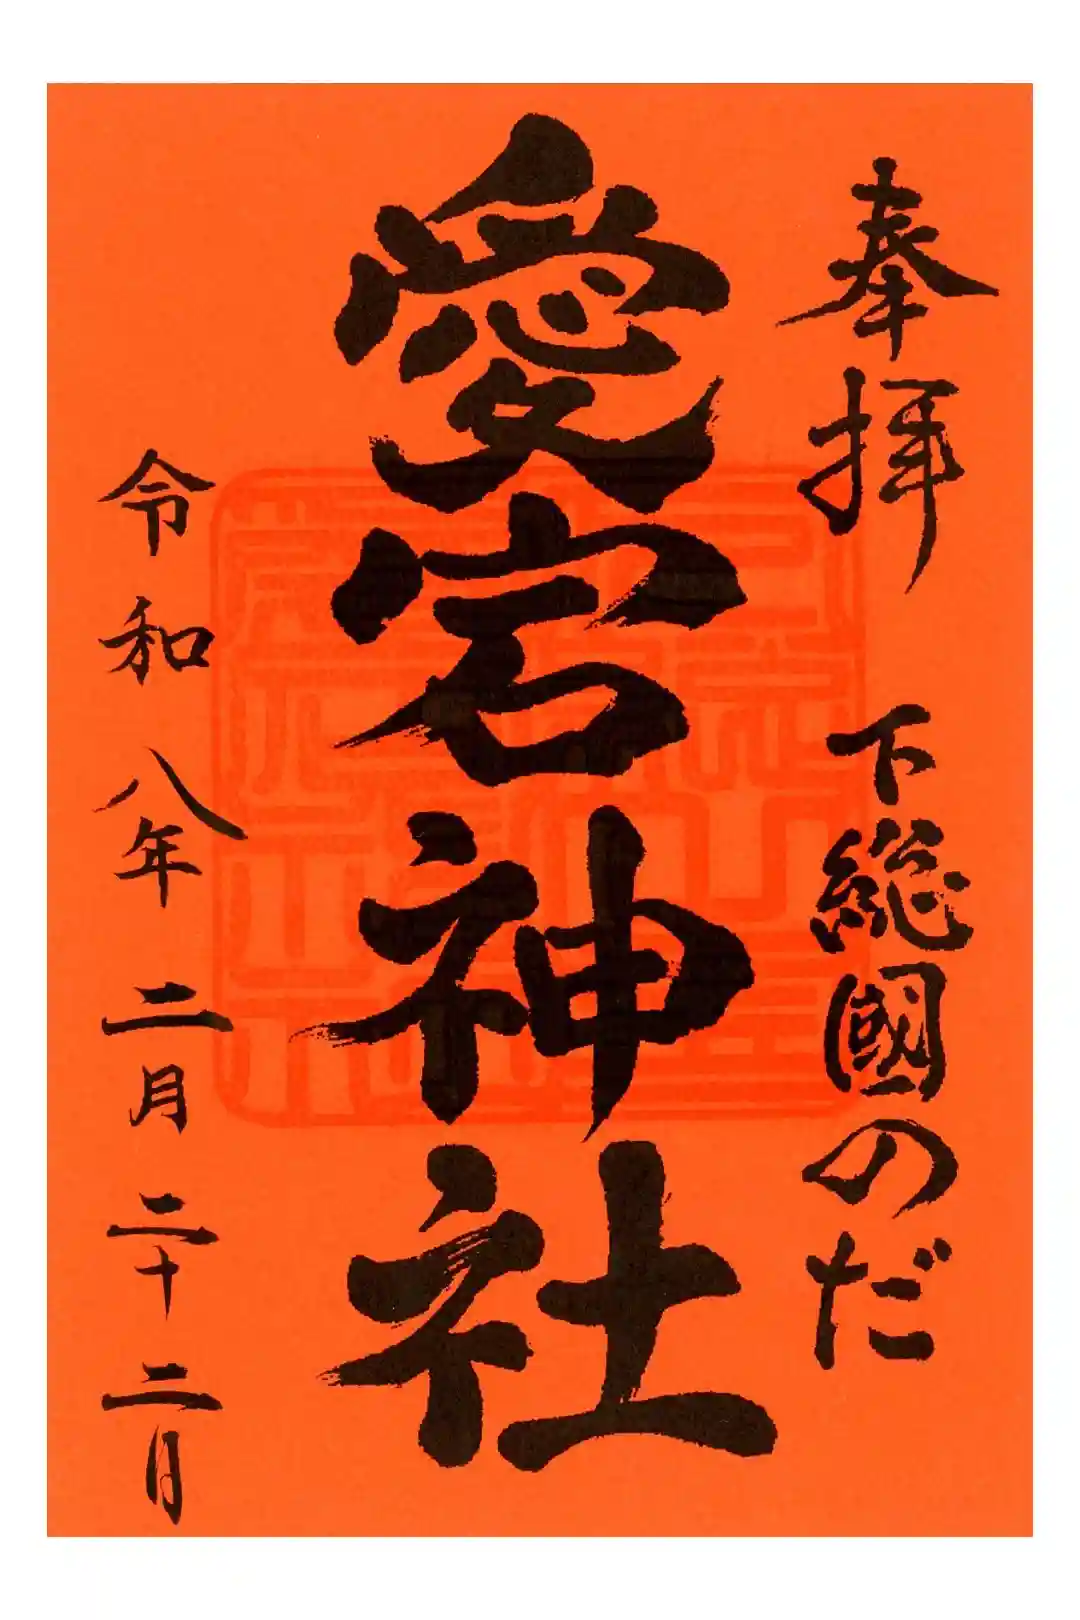 奉拝 下総國のだ
愛宕神社
令和八年二月二十二日